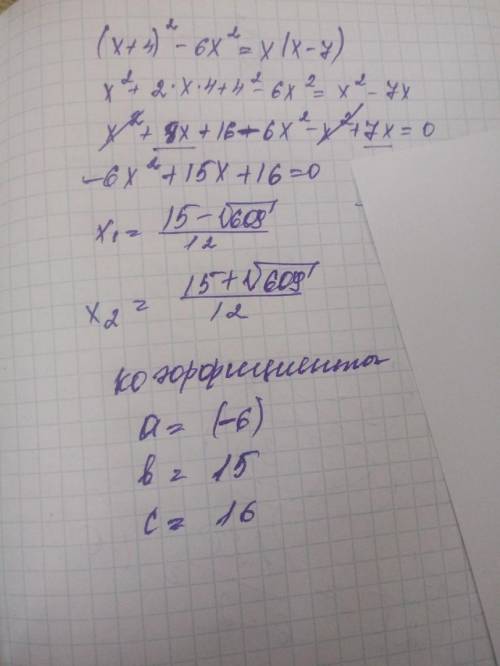 (x+4)² - 6x² = x(x-7)
x² + 2·x·4 + 4² - 6x² = x² - 7x
x² + 8x + 16 - 6x² - x² + 7x = 0
-6x² + 15x + 16 = 0
x₁ = (15 - √609)/12
x₂ = (15 + √609)/12
коэффициенты
a = (-6)
b = 15
c = 16